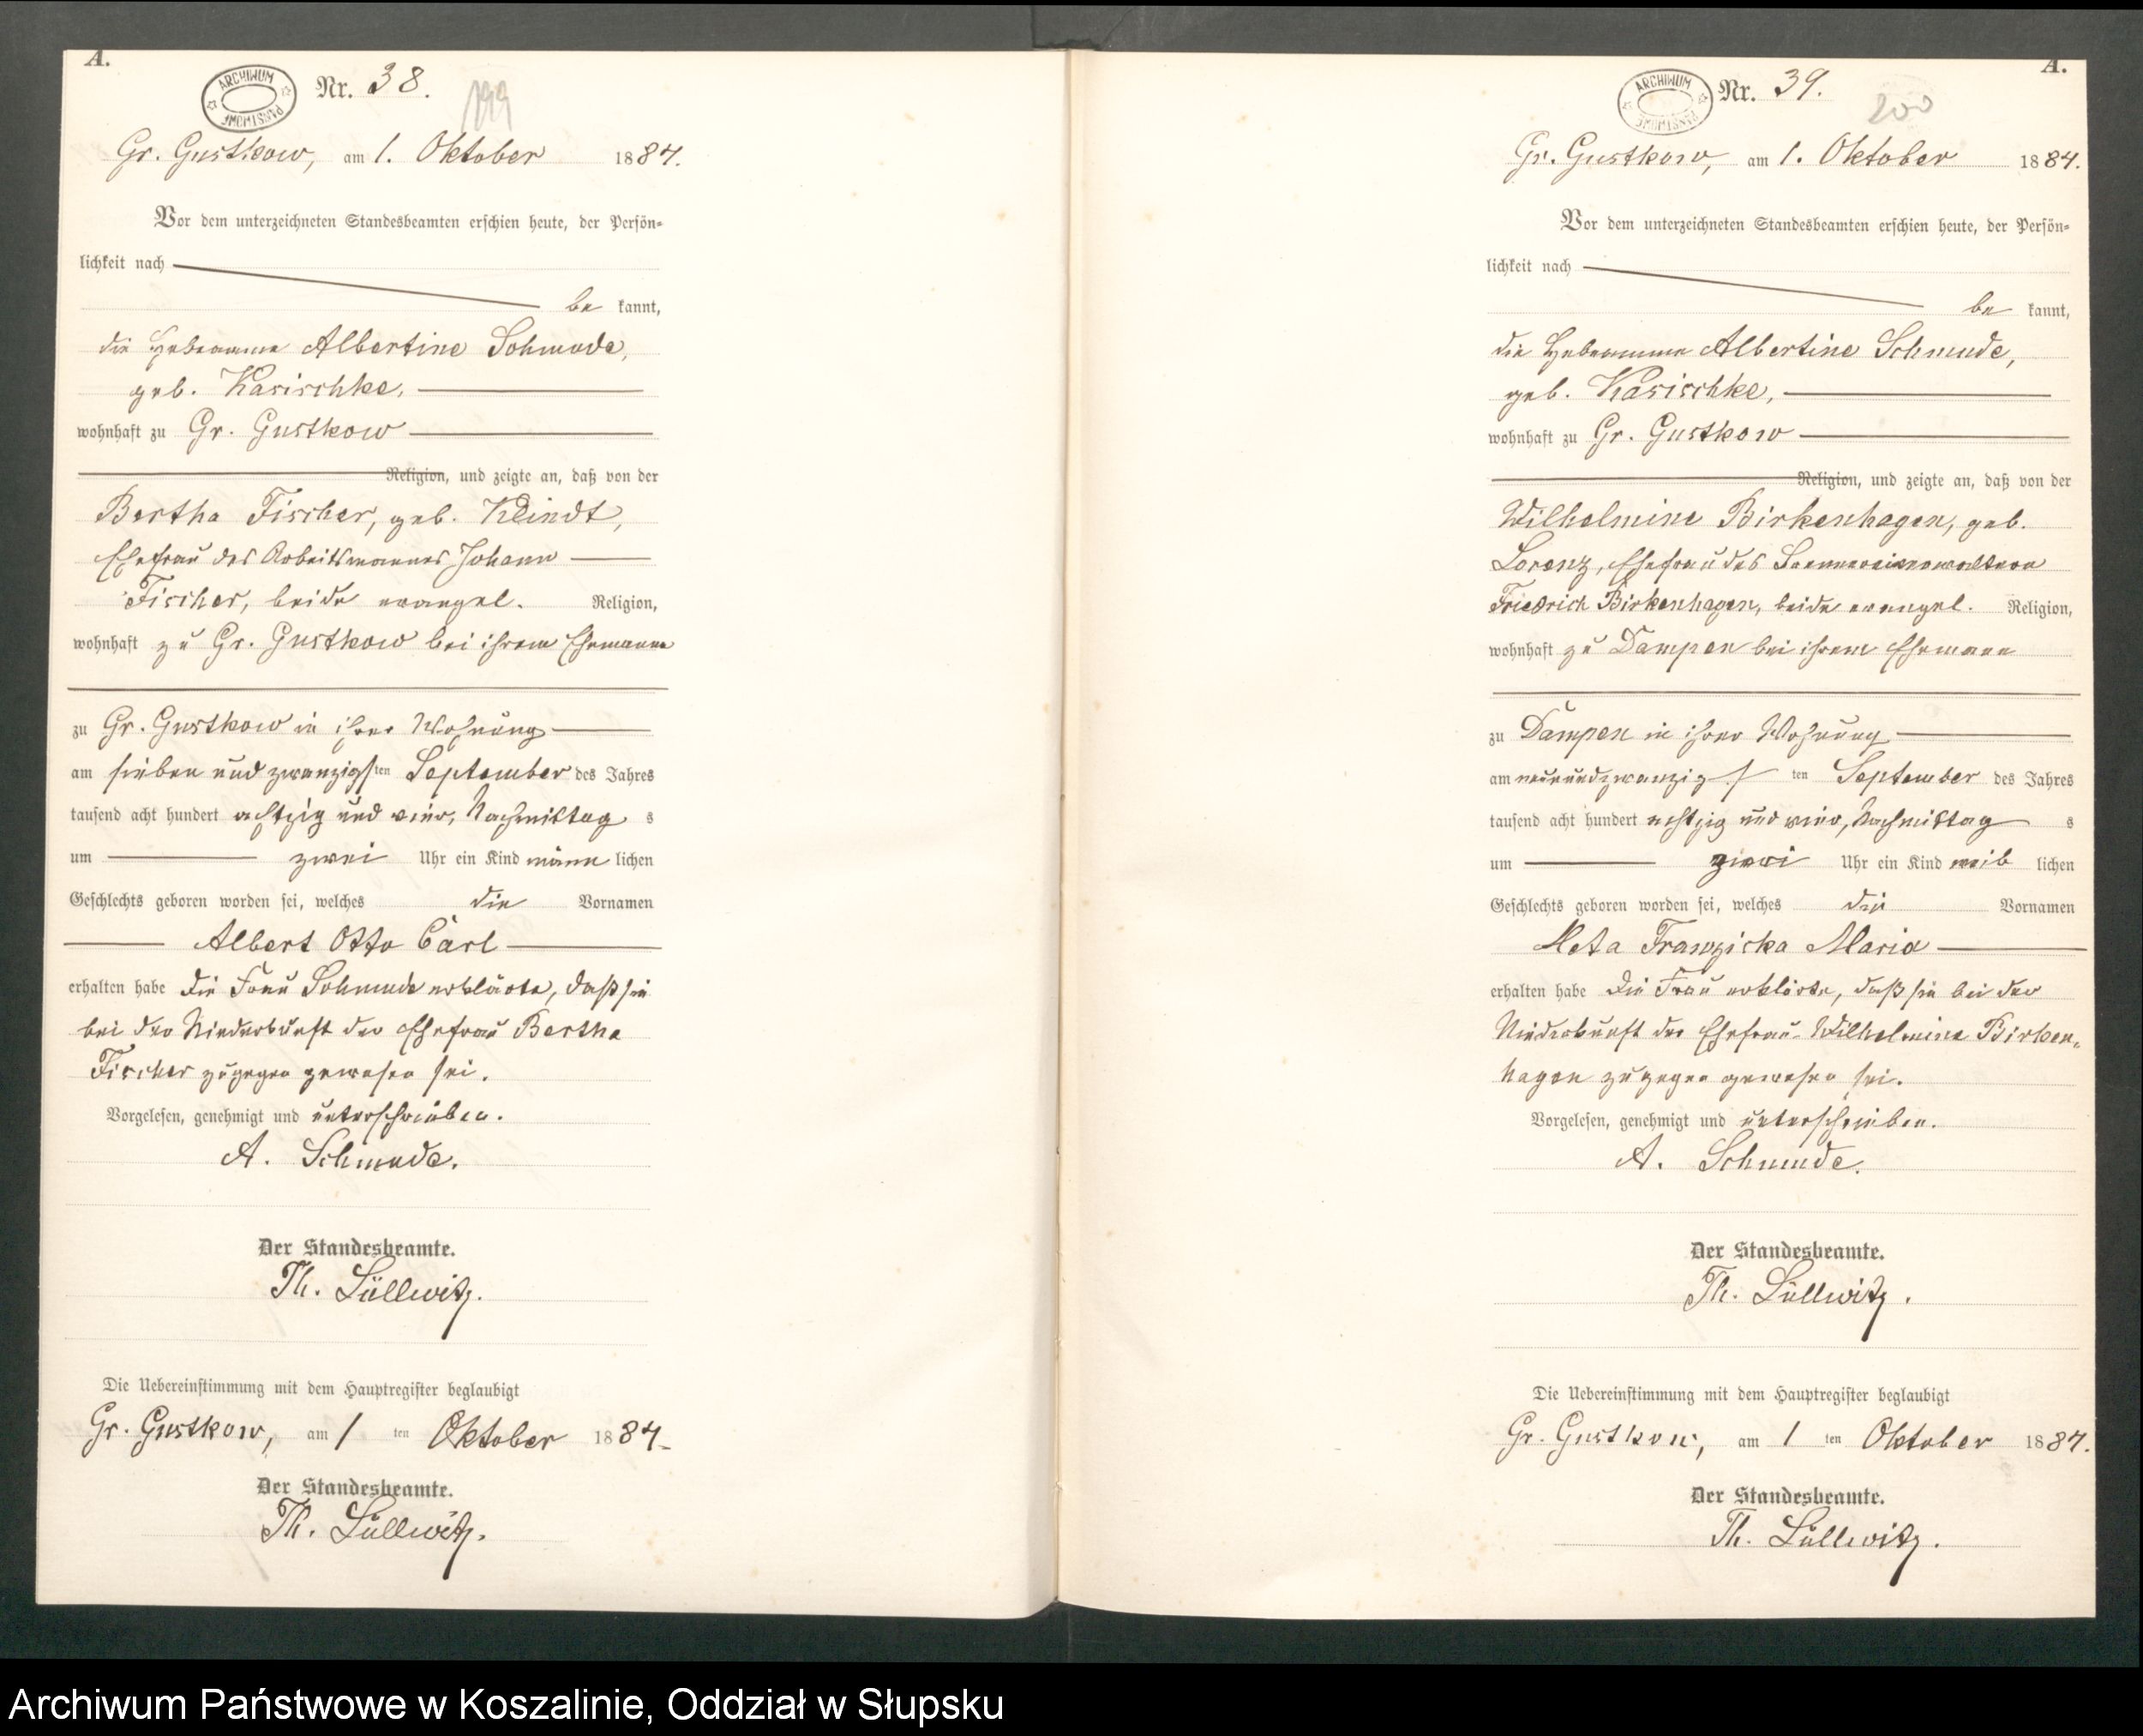 A.
ARCHIWUM PAŃSTWOWE
Nr. 38.
199
Gr. Gustkow, am 1. Oktober 1884.
Vor dem unterzeichneten Standesbeamten erschien heute, der Persön-
lichkeit nach
be kannt,
die Hebeamme Albertine Schmude,
geb. Kasischke,
wohnhaft zu Gr. Gustkow
Religion, und zeigte an, daß von der
Bertha Fischer, geb. Klindt,
Ehefrau des Arbeitsmannes Johann
Fischer, beide evangel. Religion,
wohnhaft zu Gr. Gustkow bei ihrem Ehemanne
zu Gr. Gustkow in ihrer Wohnung
am sieben und zwanzigsten September des Jahres
tausend acht hundert achtzig und vier, Nachmittag s
um zwei Uhr ein Kind männ lichen
Geschlechts geboren worden sei, welches die Vornamen
Albert Otto Carl
erhalten habe die Frau Schmude erklärte, daß sie
bei der Niederkunft der Ehefrau Bertha
Fischer zugegen gewesen sei.
Vorgelesen, genehmigt und unterschrieben.
A. Schmude.
Der Standesbeamte.
Th. Lüllwitz.
Die Uebereinstimmung mit dem Hauptregister beglaubigt
Gr. Gustkow, am 1 ten Oktober 1884.
Der Standesbeamte.
Th. Lüllwitz.
A.
ARCHIWUM PAŃSTWOWE
Nr. 39.
200
Gr. Gustkow, am 1. Oktober 1884.
Vor dem unterzeichneten Standesbeamten erschien heute, der Persön-
lichkeit nach
be kannt,
die Hebeamme Albertine Schmude,
geb. Kasischke,
wohnhaft zu Gr. Gustkow
Religion, und zeigte an, daß von der
Wilhelmine Birkenhagen, geb.
Lorenz, Ehefrau des
Friedrich Birkenhagen, beide evangel. Religion,
wohnhaft zu Dampen bei ihrem Ehemann
zu Dampen in ihrer Wohnung
am neunundzwanzigs ten September des Jahres
tausend acht hundert achtzig und vier, Nachmittag s
um zwei Uhr ein Kind weib lichen
Geschlechts geboren worden sei, welches die Vornamen
Meta Franziska Maria
erhalten habe die Frau erklärte, daß sie bei der
Niederkunft der Ehefrau Wilhelmine Birken-
hagen zugegen gewesen sei.
Vorgelesen, genehmigt und unterschrieben.
A. Schmude.
Der Standesbeamte.
Th. Lüllwitz.
Die Uebereinstimmung mit dem Hauptregister beglaubigt
Gr. Gustkow, am 1 ten Oktober 1884.
Der Standesbeamte.
Th. Lüllwitz.
Archiwum Państwowe w Koszalinie, Oddział w Słupsku